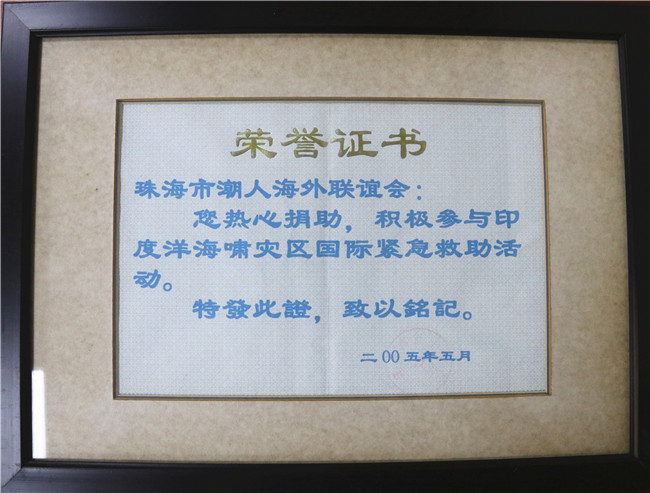 荣誉证书
珠海市潮人海外联谊会：
您热心捐助，积极参与印
度洋海啸灾区国际紧急救助活
动。
特發此證，致以銘記。
二00五年五月